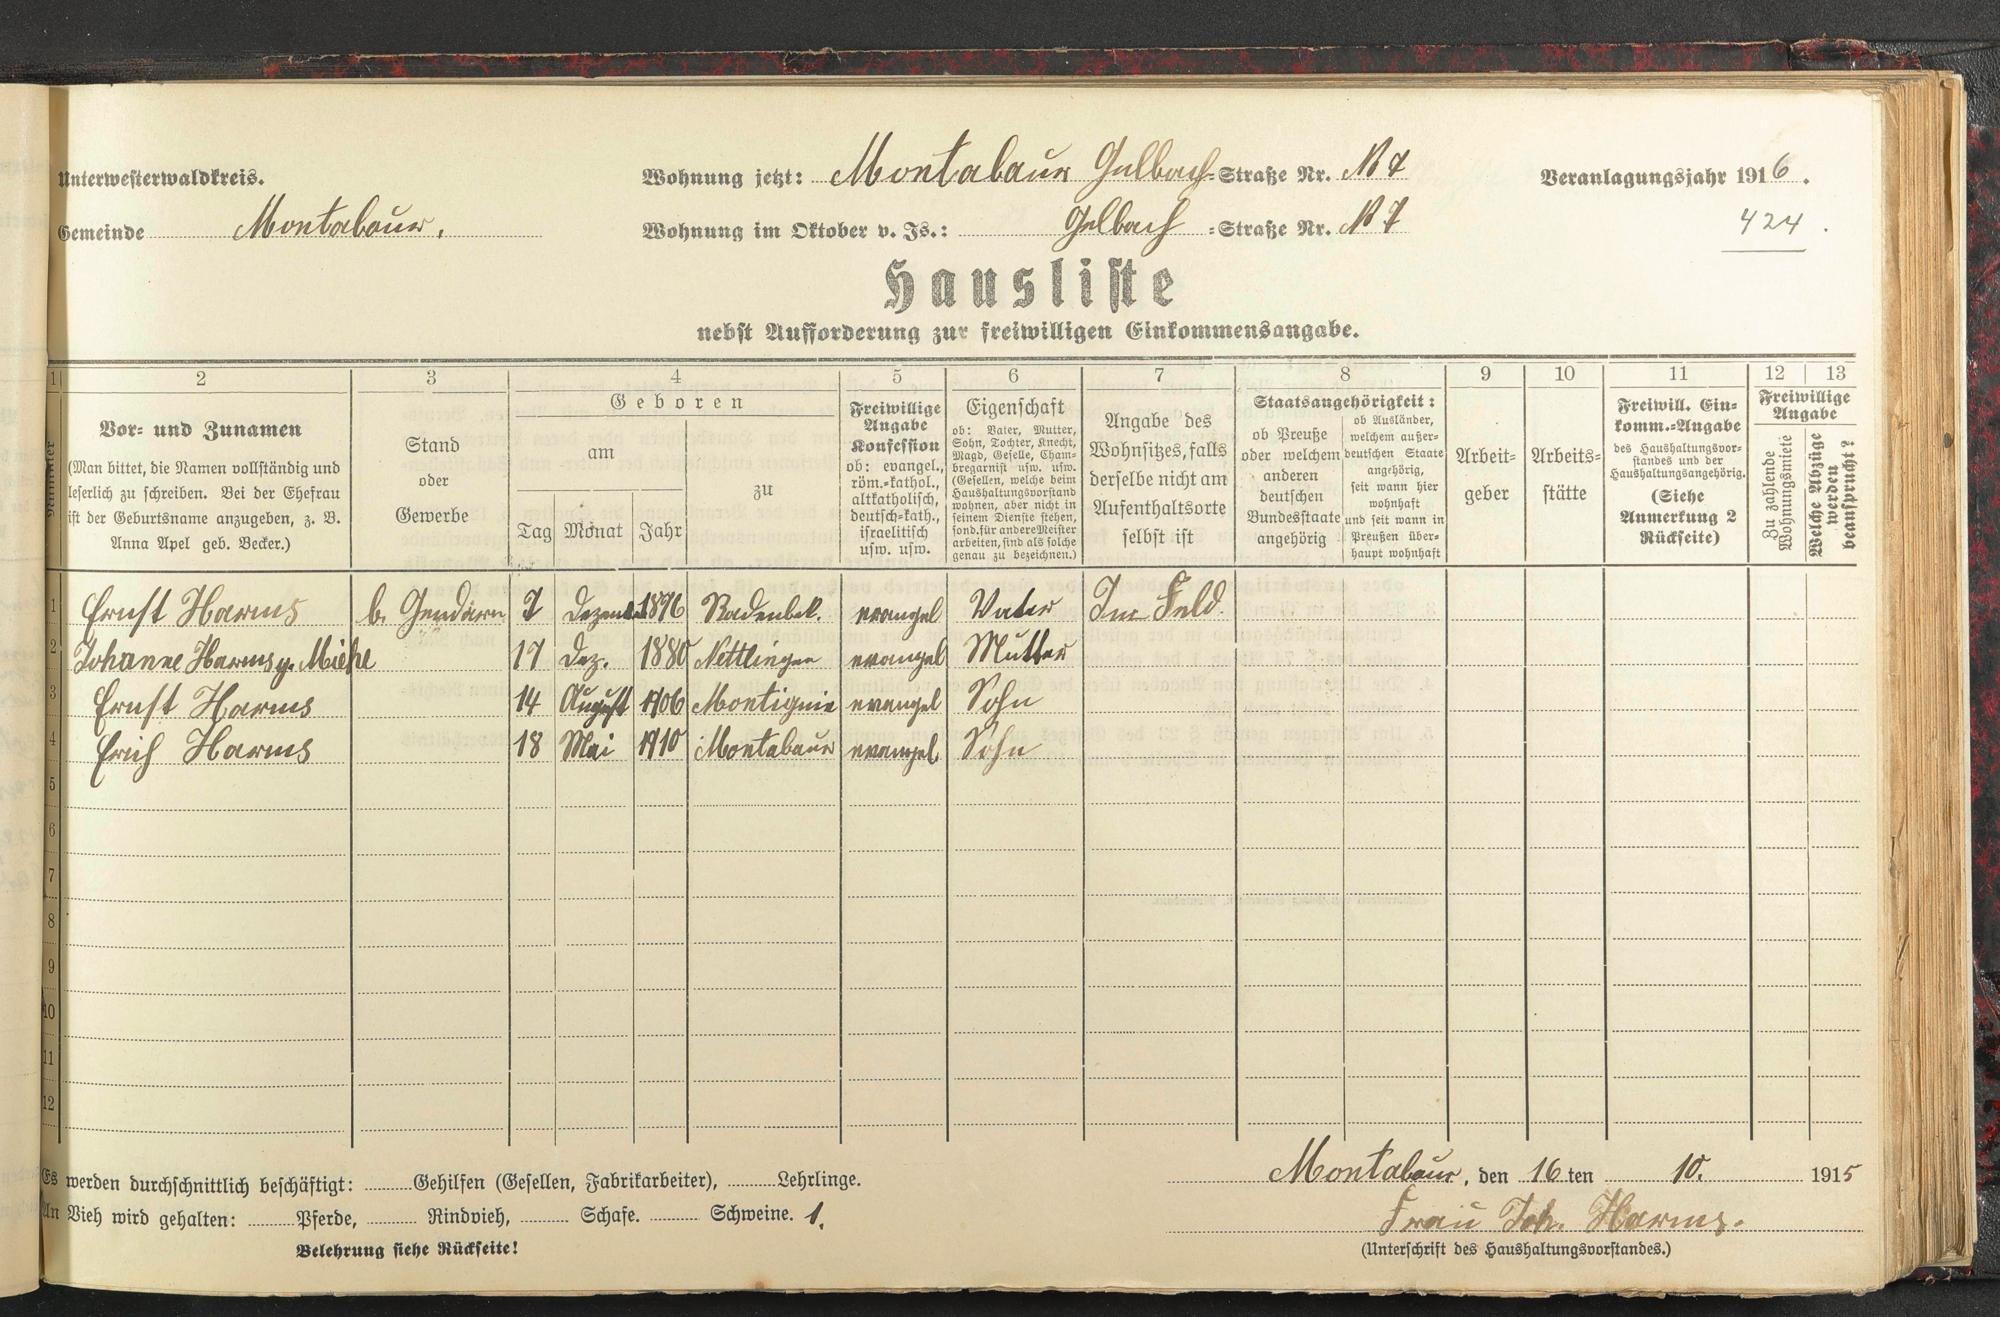 Unterwesterwaldkreis.
Wohnung jetzt: Montabaur Gelbach-Straße Nr. N 7
Veranlagungsjahr 1916.
Gemeinde Montabaur.
Wohnung im Oktober v. Js.: Gelbach-Straße Nr. N 7
424.
Hausliste
nebst Aufforderung zur freiwilligen Einkommensangabe.
1 2 3 4 5 6 7 8 9 10 11 12 13
Nummer
Vor- und Zunamen
(Man bittet, die Namen vollständig und
leserlich zu schreiben. Bei der Ehefrau
ist der Geburtsname anzugeben, z. B.
Anna Apel geb. Becker.)
Stand
oder
Gewerbe
Geboren
am
Tag Monat Jahr
zu
Freiwillige
Angabe
Konfession
ob: evangel.,
röm.-kathol.,
altkatholisch,
deutsch-kath.,
israelitisch
usw. usw.
Eigenschaft
ob: Vater, Mutter,
Sohn, Tochter, Knecht,
Magd, Geselle, Cham-
bregarnist usw. usw.
(Gesellen, welche beim
Haushaltungsvorstand
wohnen, aber nicht in
seinem Dienste stehen,
sond. für andere Meister
arbeiten, sind als solche
genau zu bezeichnen.)
Angabe des
Wohnsitzes, falls
derselbe nicht am
Aufenthaltsorte
selbst ist
Staatsangehörigkeit:
ob Preuße
oder welchem
anderen
deutschen
Bundesstaate
angehörig
ob Ausländer,
welchem außer-
deutschen Staate
angehörig,
seit wann hier
wohnhaft
und seit wann in
Preußen über-
haupt wohnhaft
Arbeit-
geber
Arbeits-
stätte
Freiwill. Ein-
komm.-Angabe
des Haushaltungsvor-
standes und der
Haushaltungsangehörig.
(Siehe
Anmerkung 2
Rückseite)
Freiwillige
Angabe
Zu zahlende
Wohnungsmiete
Welche Abzüge
werden
beansprucht?
1 Ernst Harms b. Gendarm 7 Dezemb. 1876 Radenbek. evangel Vater Im Feld.
2 Johanne Harms g. Miehe 17 Dez. 1880 Nettlingen evangel Mutter
3 Ernst Harms 14 August 1906 Montignie evangel Sohn
4 Erich Harms 18 Mai 1910 Montabaur evangel Sohn
5
6
7
8
9
10
11
12
Es werden durchschnittlich beschäftigt: Gehilfen (Gesellen, Fabrikarbeiter), Lehrlinge.
An Vieh wird gehalten: Pferde, Rindvieh, Schafe. Schweine. 1.
Belehrung siehe Rückseite!
Montabaur, den 16ten 10. 1915
Frau Joh. Harms.
(Unterschrift des Haushaltungsvorstandes.)